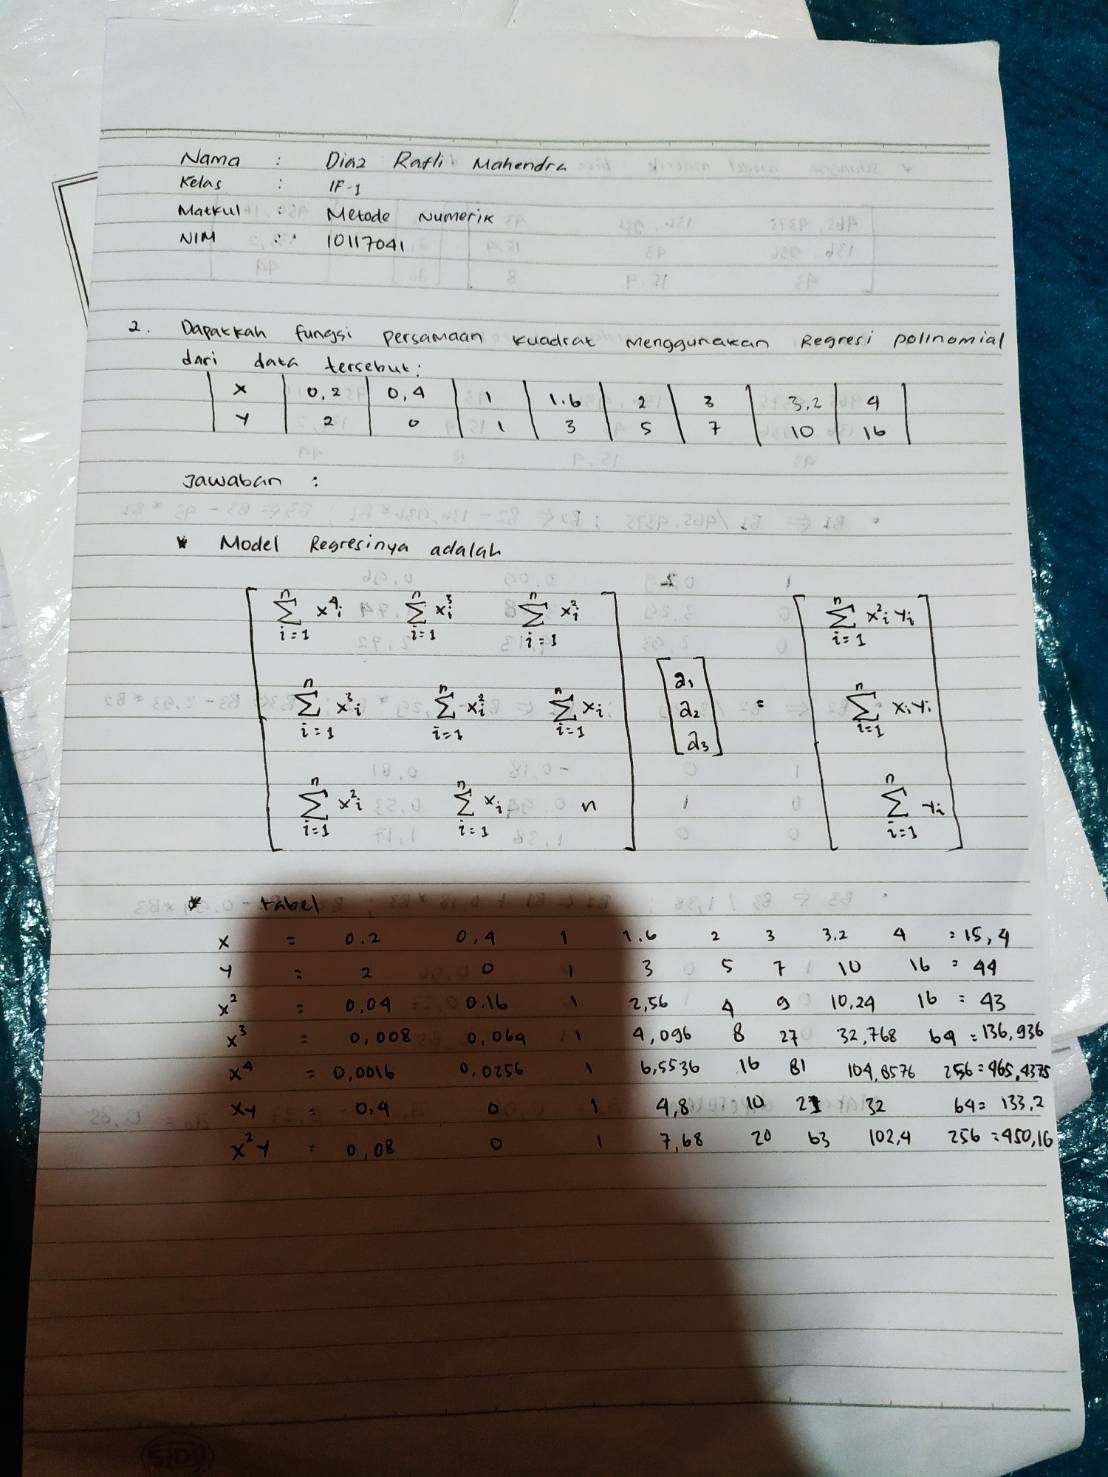 Nama : Diaz Rafli Mahendra
Kelas : IF-1
Matkul : Metode Numerik
NIM : 10117041
2. Dapatkah fungsi persamaan kuadrat menggunakan Regresi polinomial
dari data tersebut:
x | 0,2 | 0,4 | 1 | 1.6 | 2 | 3 | 3,2 | 4
y | 2 | 0 | 1 | 3 | 5 | 7 | 10 | 16
Jawaban :
* Model Regresinya adalah
[ n∑i=1 x⁴i  n∑i=1 x³i  n∑i=1 x²i ] [ n∑i=1 x²i yi ]
[ n∑i=1 x³i  n∑i=1 x²i  n∑i=1 xi ] [ a1 a2 a3 ] = [ n∑i=1 xi yi ]
[ n∑i=1 x²i  n∑i=1 xi  n ] [ n∑i=1 yi ]
* tabel
x = 0.2 0,4 1 1.6 2 3 3,2 4 = 15,4
y = 2 0 1 3 5 7 10 16 = 44
x² = 0,04 0.16 1 2,56 4 9 10,24 16 = 43
x³ = 0,008 0,064 1 4,096 8 27 32,768 64 = 136,936
x⁴ = 0,0016 0,0256 1 6,5536 16 81 104,8576 256 = 465,4375
xy = 0.4 0 1 4,8 10 21 32 64 = 133,2
x²y = 0,08 0 1 7,68 20 63 102,4 256 = 450,16
SIDU